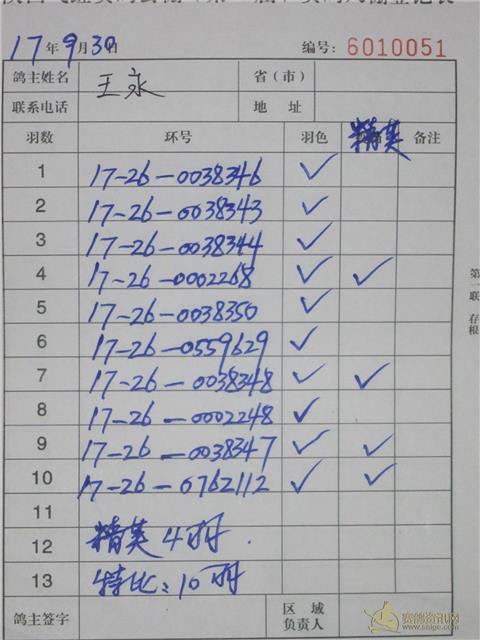 17年9月30日 编号: 6010051
鸽主姓名 王永 省(市)
联系电话 地 址
羽数 环号 羽色 精英 备注
1 17-26-0038346 ✓
2 17-26-0038343 ✓
3 17-26-0038344 ✓
4 17-26-0002268 ✓ ✓
5 17-26-0038350 ✓
6 17-26-0559629 ✓
7 17-26-0038348 ✓ ✓
8 17-26-0002248 ✓
9 17-26-0038347 ✓ ✓
10 17-26-0762112 ✓ ✓
11
12 精英4羽.
13 特比:10羽
鸽主签字 区 域
负责人
第一联 存根
赛鸽资讯网
www.saige.com